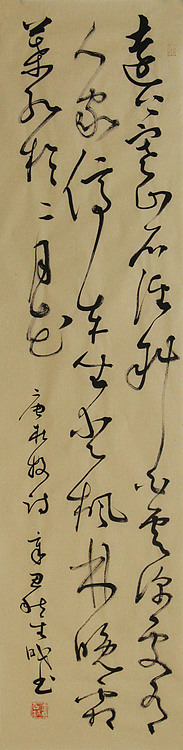 遠上寒山石徑斜白雲深處有
人家停車坐愛楓林晚霜
葉紅於二月花
唐杜牧詩 辛丑秋 書